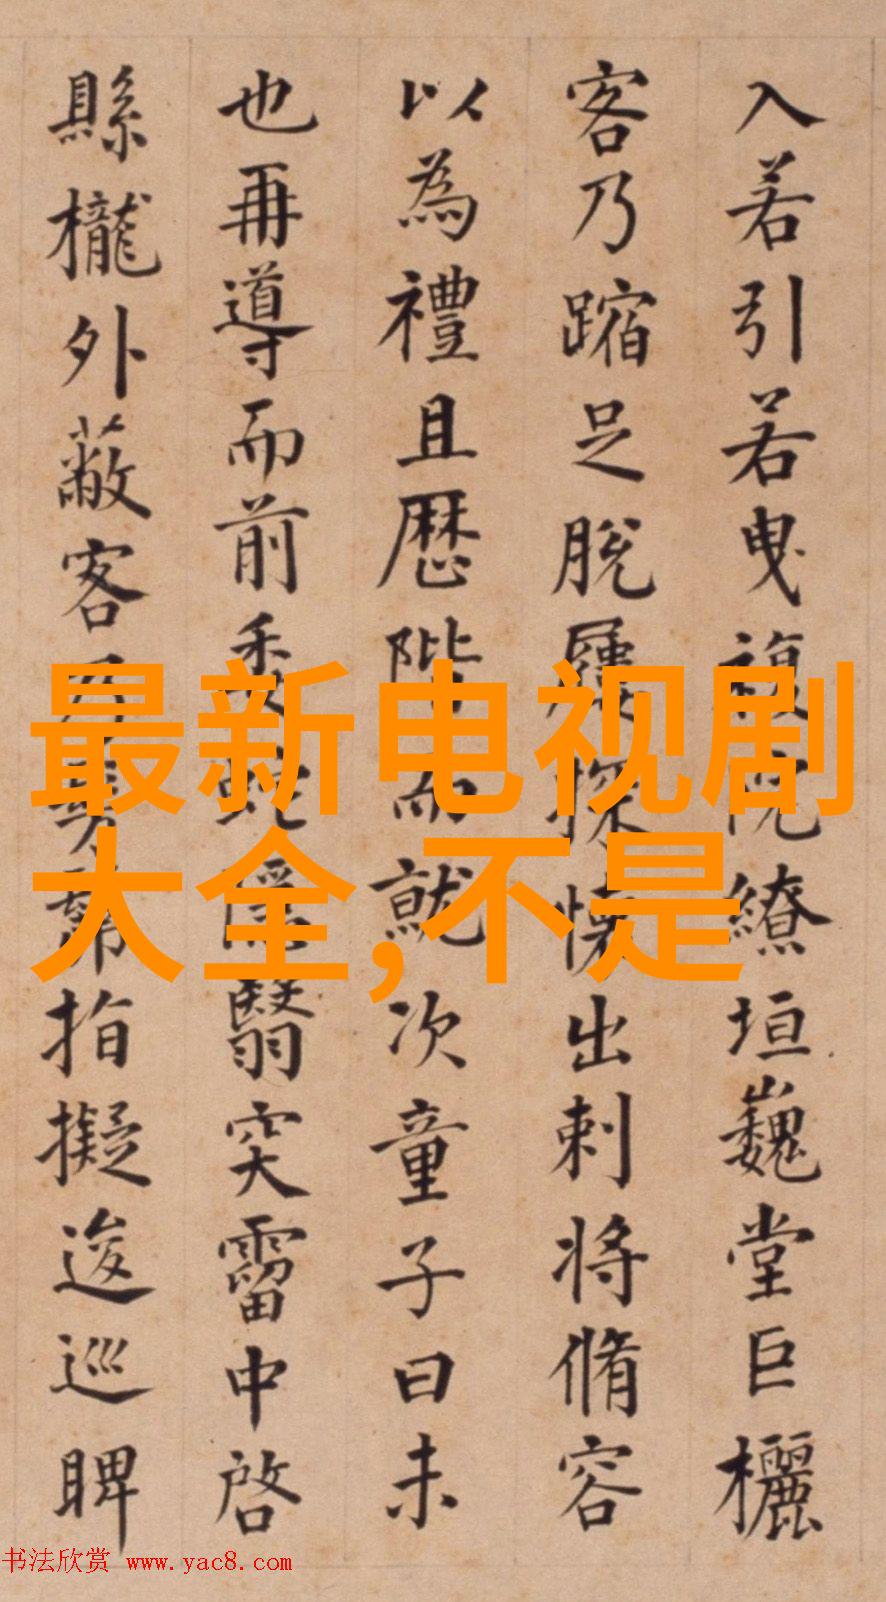 入若引若曳複院繚垣巍堂巨欐
客乃蹜足脫屨探懷出刺將脩容
以為禮且歷階而就次童子曰未
也再導而前委蛇隱翳穾霤中啓
縣櫳外蔽客乃

指擬逡巡睥
最新电视剧
大全,不是
书法欣赏 www.yac8.com